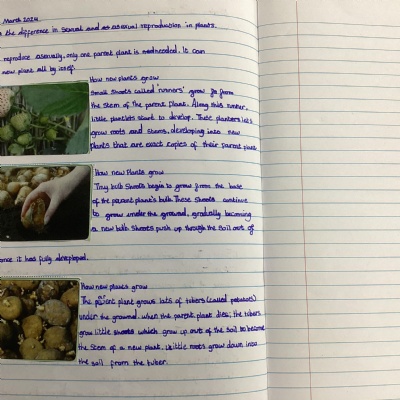 March 2024
the difference in sexual and asexual reproduction in plants.
reproduce asexually, only one parent plant is needed. It can
new plant all by itself.
How new plants grow
Small shoots called 'runners' grow from
the stem of the parent plant. Along this runner,
little plantlets start to develop. These plantlets
grow roots and stems, developing into new
plants that are exact copies of their parent plant
How new Plants grow
Tiny bulb Shoots begin to grow from the base
of the parent plant's bulb. These shoots continue
to grow under the ground, gradually becoming
a new bulb. Shoots push up through the soil out of
once it has fully developed.
How new plants grow
The parent plant grows lots of tubers (called potatoes)
under the ground. When the parent plant dies, the tubers
grow little shoots which grow up out of the soil to become
the stem of a new plant. Little roots grow down into
the soil from the tuber.